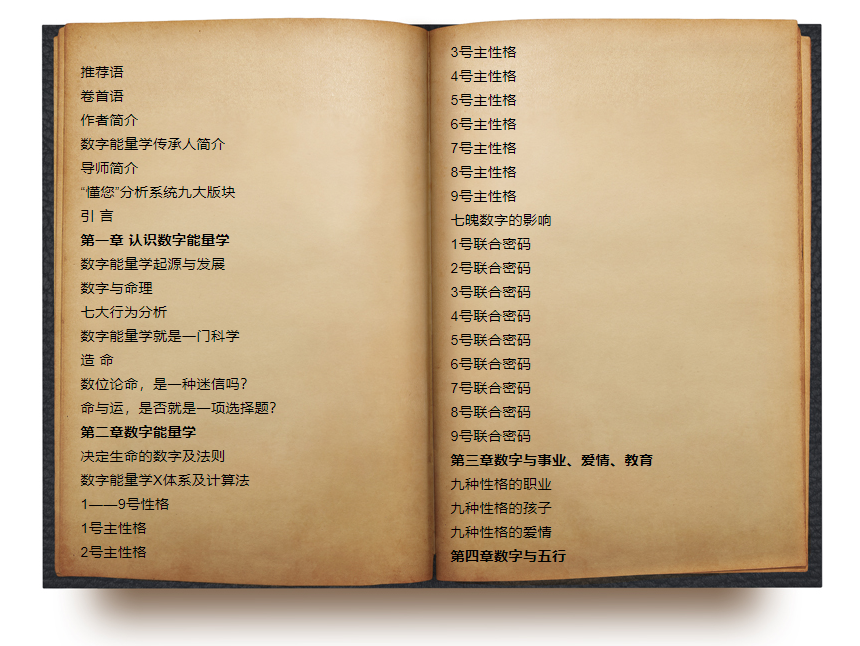 推荐语
卷首语
作者简介
数字能量学传承人简介
导师简介
“懂您”分析系统九大版块
引 言
第一章 认识数字能量学
数字能量学起源与发展
数字与命理
七大行为分析
数字能量学就是一门科学
造 命
数位论命，是一种迷信吗？
命与运，是否就是一项选择题？
第二章数字能量学
决定生命的数字及法则
数字能量学X体系及计算法
1——9号性格
1号主性格
2号主性格
3号主性格
4号主性格
5号主性格
6号主性格
7号主性格
8号主性格
9号主性格
七魄数字的影响
1号联合密码
2号联合密码
3号联合密码
4号联合密码
5号联合密码
6号联合密码
7号联合密码
8号联合密码
9号联合密码
第三章数字与事业、爱情、教育
九种性格的职业
九种性格的孩子
九种性格的爱情
第四章数字与五行